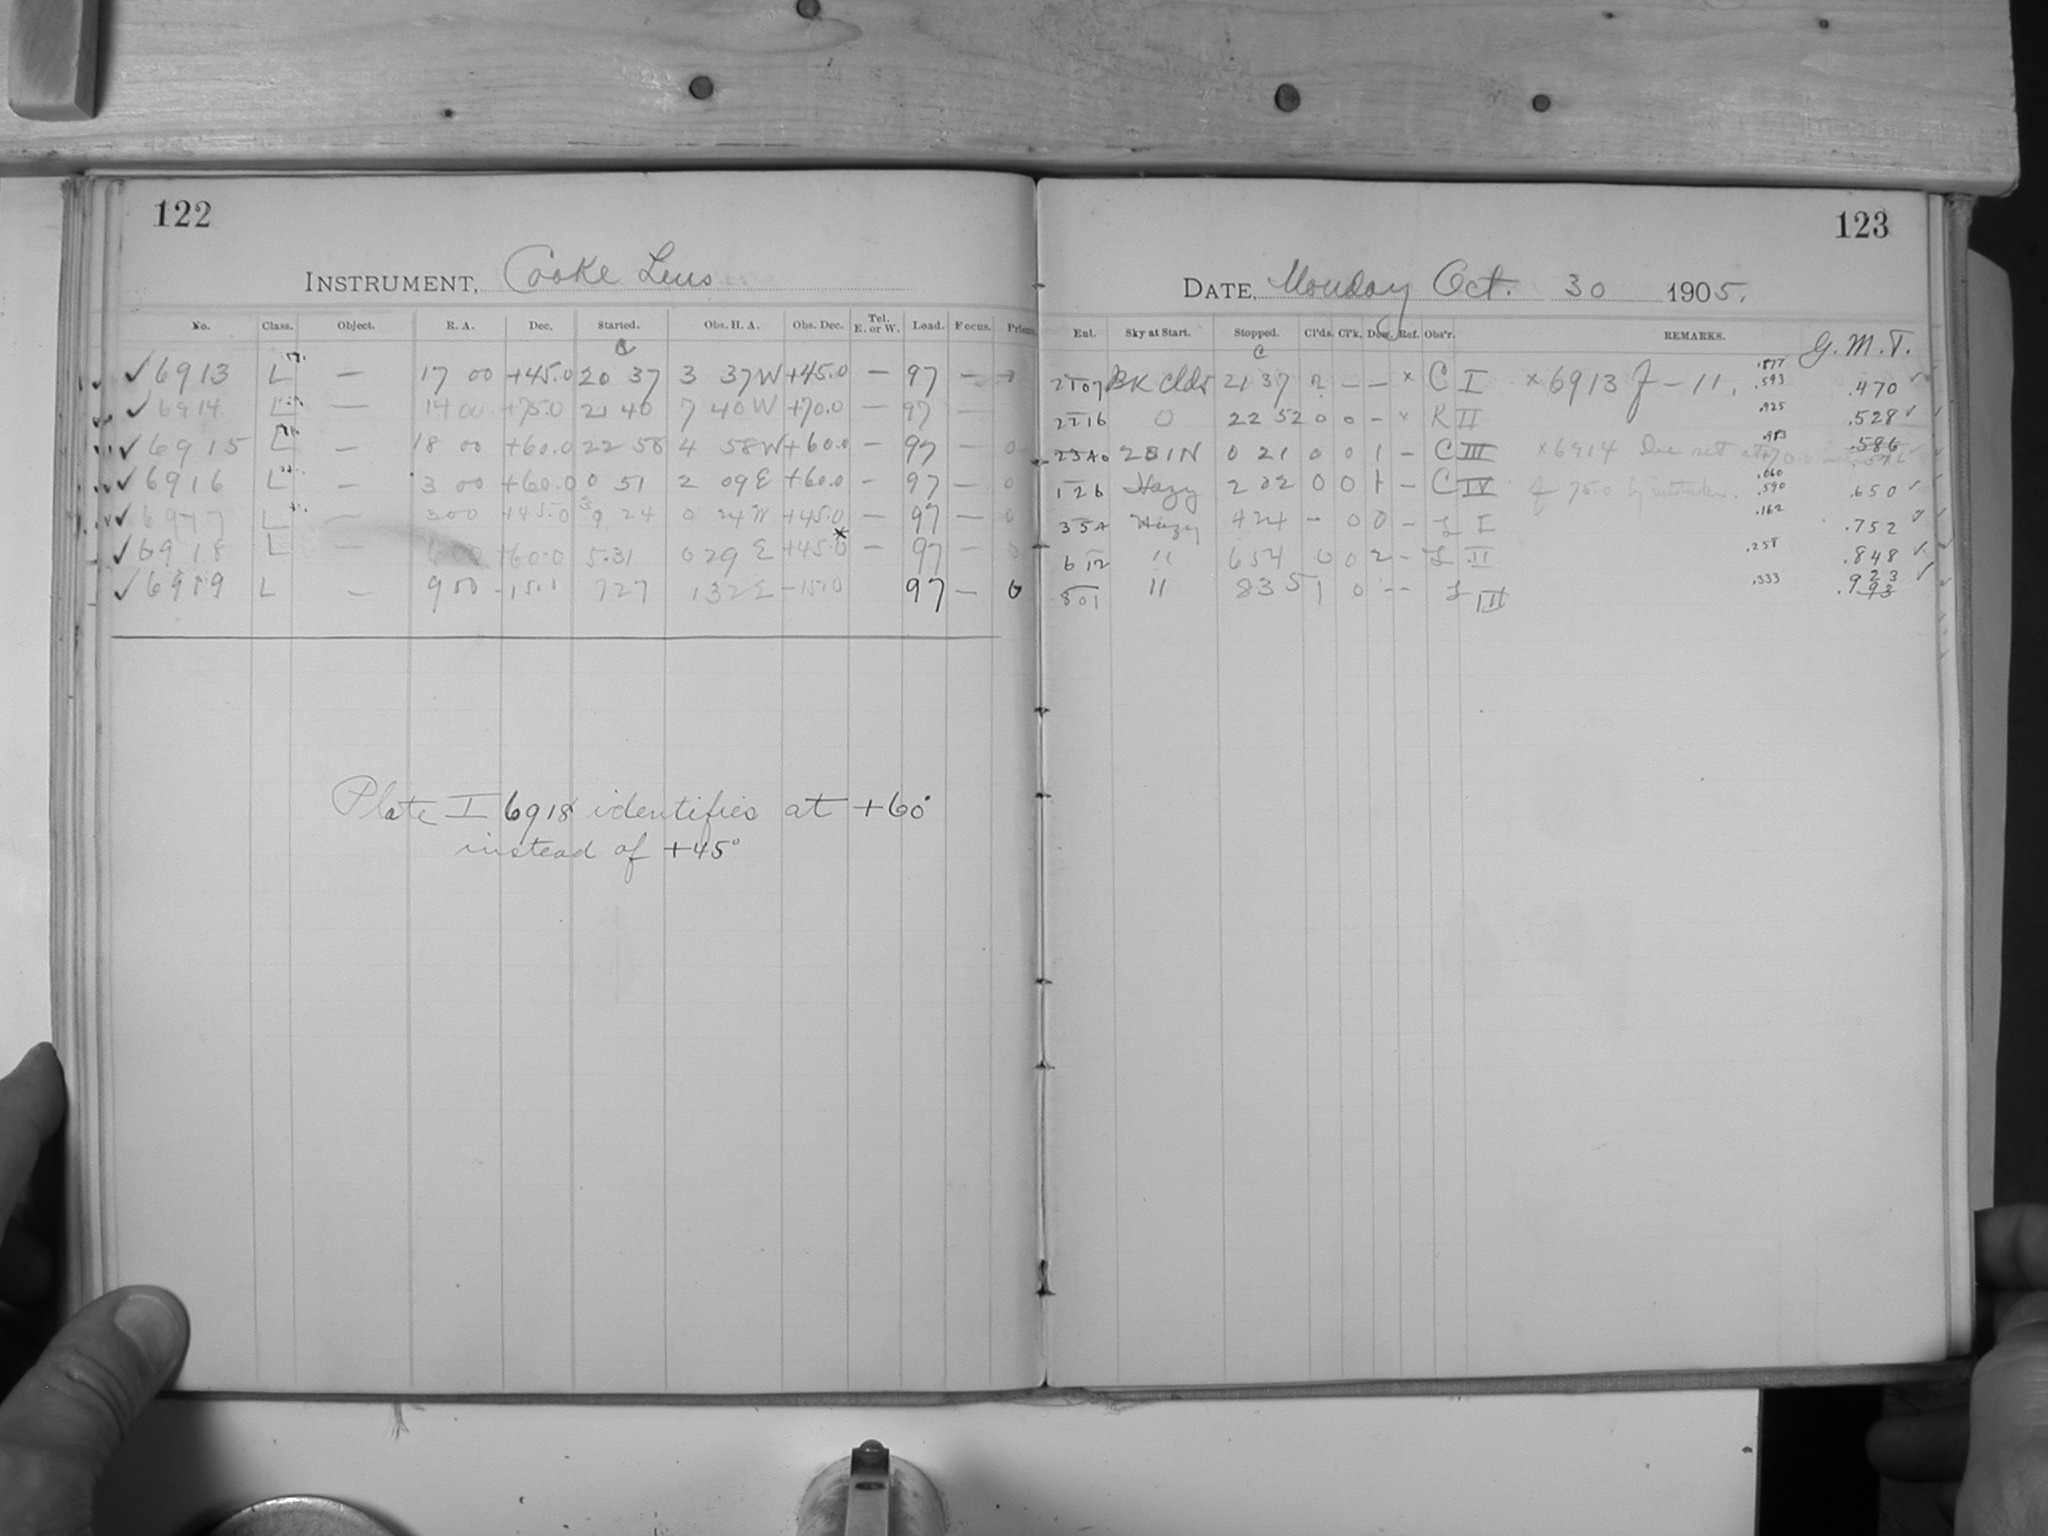 122
INSTRUMENT, Cooke Lens
No. Class. Object. R. A. Dec. Started. Obs. H. A. Obs. Dec. Tel. E. or W. Load. Focus. Prisms.
c
✓ 6913 L — 17 00 +45.0 20 37 3 37W +45.0 — 97 —
✓ 6914 L — 14 00 +75.0 21 40 7 40W +70.0 — 97 —
✓ 6915 L — 18 00 +60.0 22 58 4 58W +60.0 — 97 — 0
✓ 6916 L — 3 00 +60.0 0 51 2 09E +60.0 — 97 — 0
✓ 6917 L — 3 00 +45.0 3 24 0 24W +45.0 — 97 — 0
✓ 6918 L — 6 00 +60.0 5 31 0 29 E +45.0 * — 97 — 0
✓ 6919 L — 9 00 -15.0 7 27 1 32 E -15.0 97 — 0
Plate I 6918 identifies at +60°
instead of +45°
123
DATE, Monday Oct. 30 1905.
Ent. Sky at Start. Stopped. Cl'ds. Cl'k. Dew. Ref. Obs'r. REMARKS. G. M. T.
c
21 07 BK Clds 21 37 2 — — × C I × 6913 f — 11. .877 .593 .470 ✓
22 16 0 22 52 0 0 — × K II .925 .528 ✓
23 40 0 21 0 0 1 — C III × 6914 Dec set at +70 .983 .586
1 26 Hazy 2 02 0 0 1 — C IV of 75.0 by mistake. .060 .590 .650 ✓
3 54 Hazy 4 24 — 0 0 — L I .162 .752 ✓
6 12 " 6 54 0 0 2 — L II .258 .848 ✓
8 01 " 8 35 1 0 - - L III .333 .923 ✓